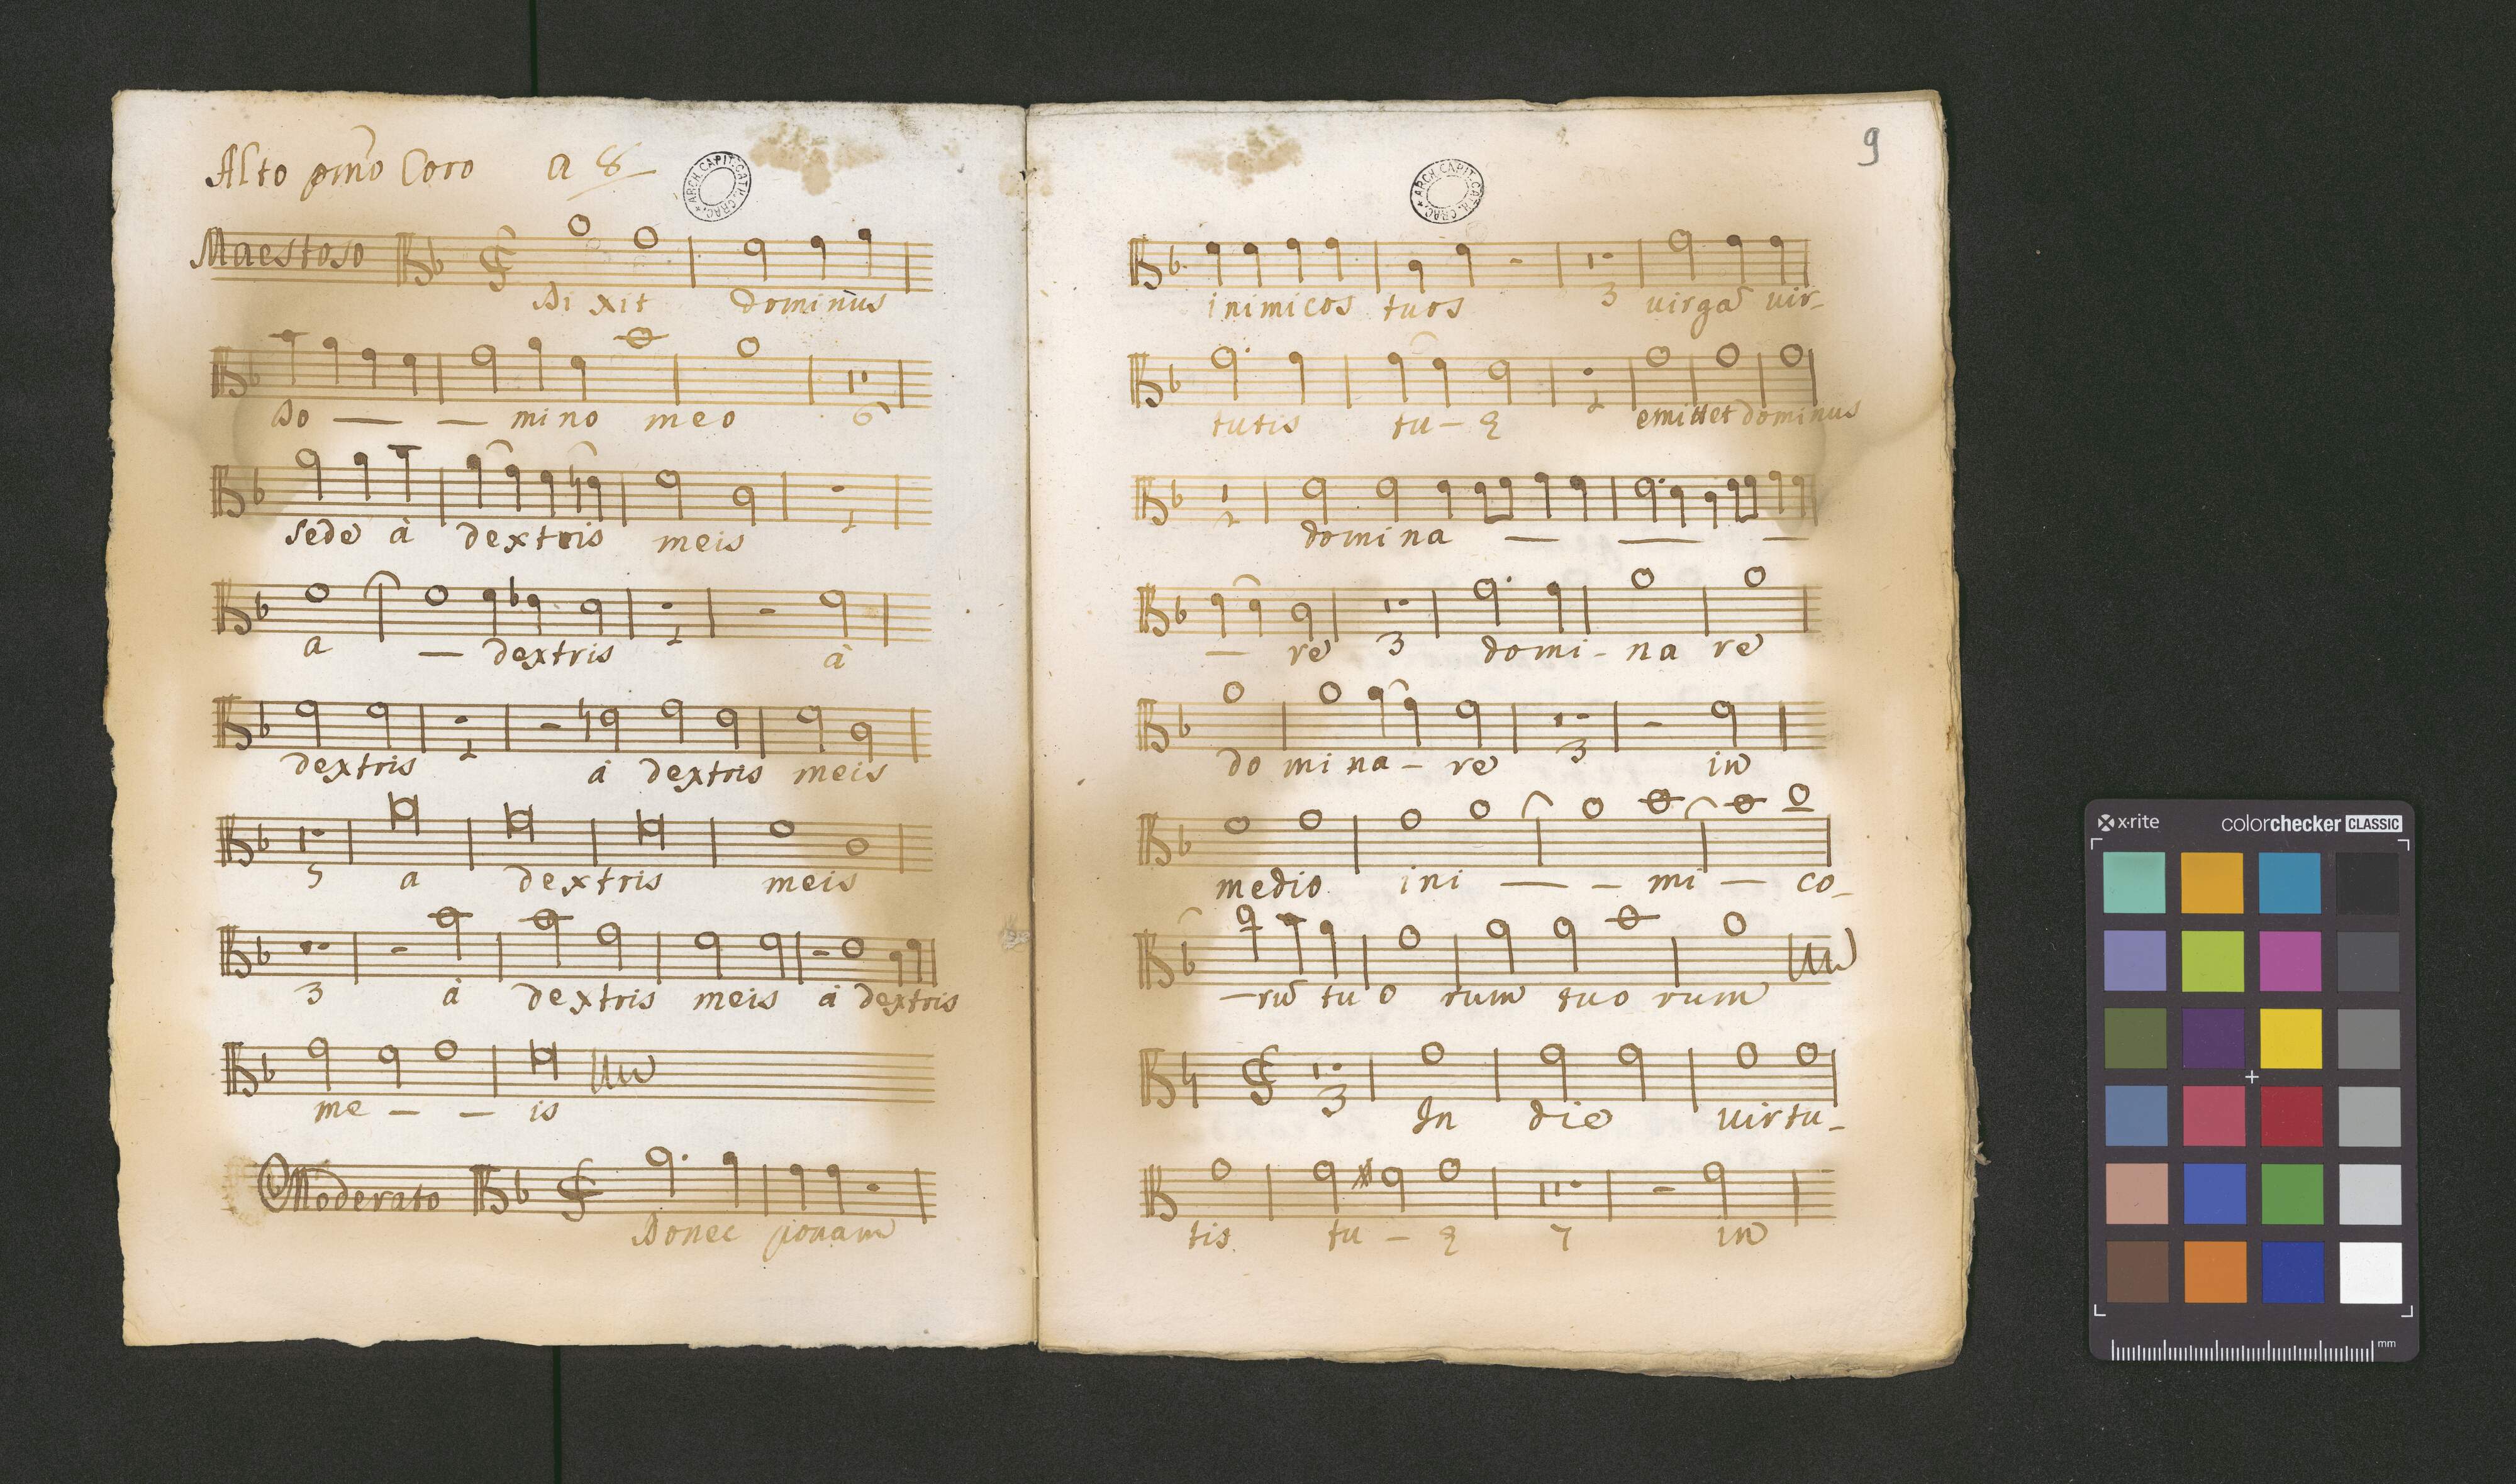 Alto pmo Coro a 8
ARCH. CAPIT. CATH. CRAC.
Maestoso
Di xit dominus
Do — — mino meo 6
sede à dextris meis 1
a — dextris 1 à
dextris 1 à dextris meis
5 a dextris meis
3 à dextris meis à dextris
me — — is
Moderato
Donec ponam
9
ARCH. CAPIT. CATH. CRAC.
inimicos tuos 3 virgã vir-
tutis tu - ę 1 emittet dominus
1 domina — — —
— re 3 domi - na re
do mi na - re 3 in
medio ini — - mi — co-
-rũ tu o rum tuo rum
3 In die virtu-
tis tu - ę 7 in
x-rite colorchecker CLASSIC
mm